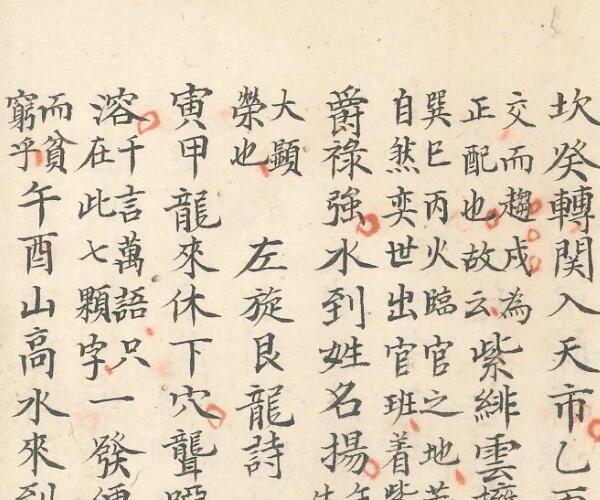 坎癸轉関入天市乙
交而趨戌為
正配也故云
紫緋雲
巽巳丙火臨官之地
自然奕世出官班着紫
爵祿強水到姓名揚
大顯
榮也
左旋艮龍詩
寅甲龍來休下穴聾啞
溶
千言萬語只
在此七顆字
一發便
而貧
窮乎
午酉山高水來到